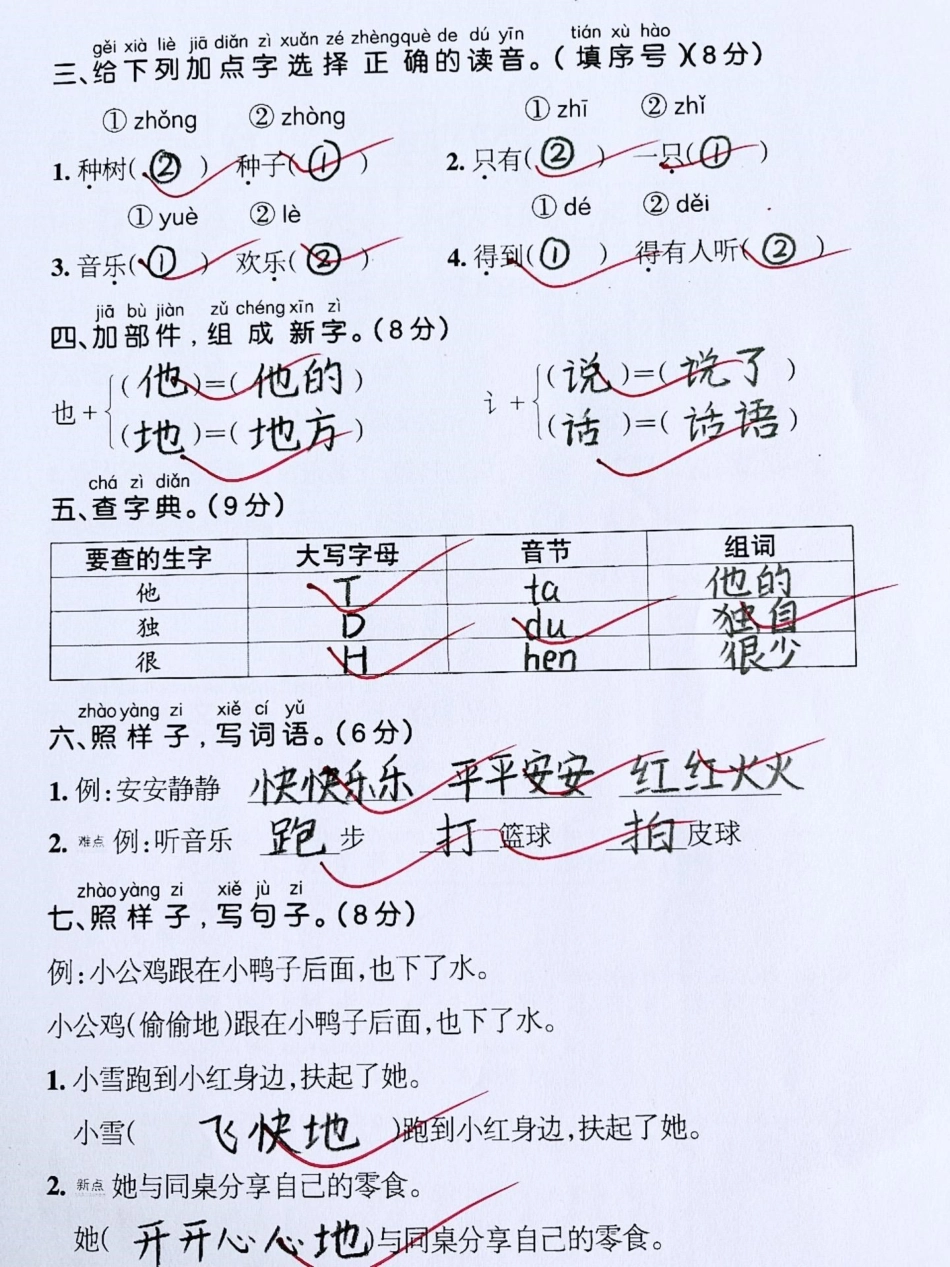 gěi xià liè jiā diǎn zì xuǎn zé zhèng què de dú yīn tián xù hào
三、给下列加点字选择正确的读音。(填序号)(8分)
① zhǒng ② zhòng ① zhī ② zhǐ
1. 种树(②) 种子(①) 2. 只有(②) 一只(①)
① yuè ② lè ① dé ② děi
3. 音乐(①) 欢乐(②) 4. 得到(①) 得有人听(②)
jiā bù jiàn zǔ chéng xīn zì
四、加部件,组成新字。(8分)
(他)=(他的) (说)=(说了)
也+ 讠+
(地)=(地方) (话)=(话语)
chá zì diǎn
五、查字典。(9分)
要查的生字 大写字母 音节 组词
他 T ta 他的
独 D du 独自
很 H hen 很少
zhào yàng zi xiě cí yǔ
六、照样子,写词语。(6分)
1. 例:安安静静 快快乐乐 平平安安 红红火火
2. 难点 例:听音乐 跑步 打篮球 拍皮球
zhào yàng zi xiě jù zi
七、照样子,写句子。(8分)
例:小公鸡跟在小鸭子后面,也下了水。
小公鸡(偷偷地)跟在小鸭子后面,也下了水。
1. 小雪跑到小红身边,扶起了她。
小雪(飞快地)跑到小红身边,扶起了她。
2. 新点 她与同桌分享自己的零食。
她(开开心心地)与同桌分享自己的零食。